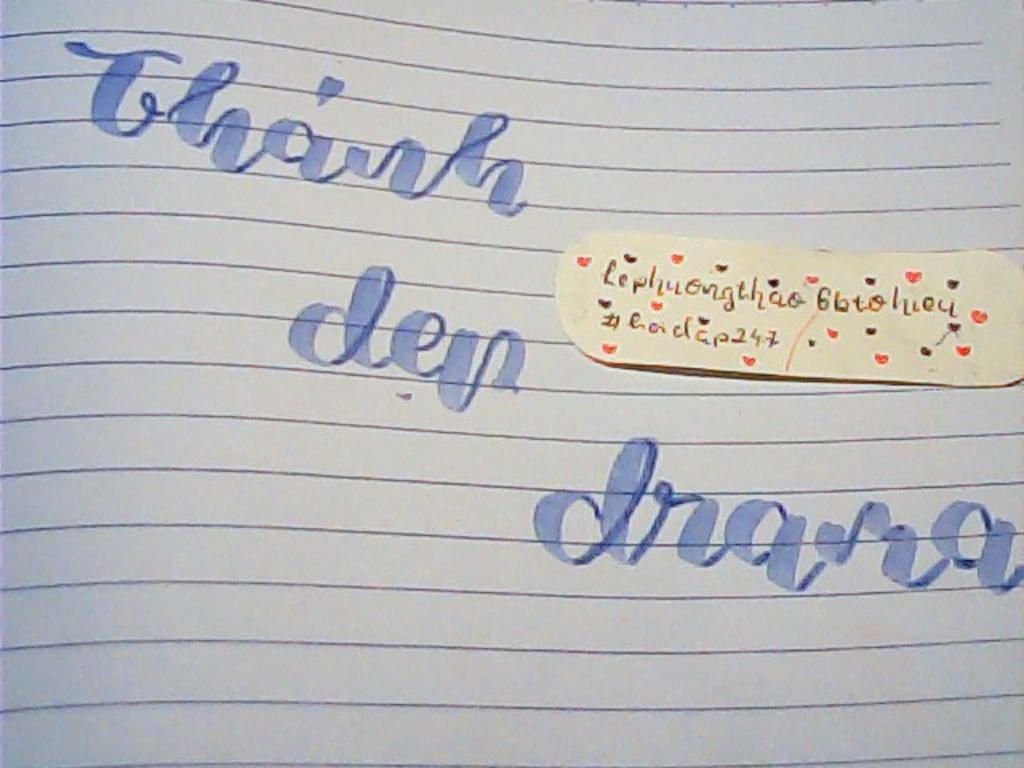 Thánh
dẹp
lephuongthao 6btohieu
#hoidap247
drama